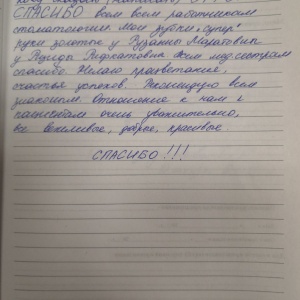 СПАСИБО всем всем работникам
стоматологии. Мои зубки „супер"
руки золотые у
у Рифкатовна всем мед. сёстрам
спасибо. Желаю процветания,
счастья успехов. Рекомендую всем
знакомым. Отношение к нам к
пациентам очень уважительно,
все вежливые, добрые, красивые.
СПАСИБО!!!